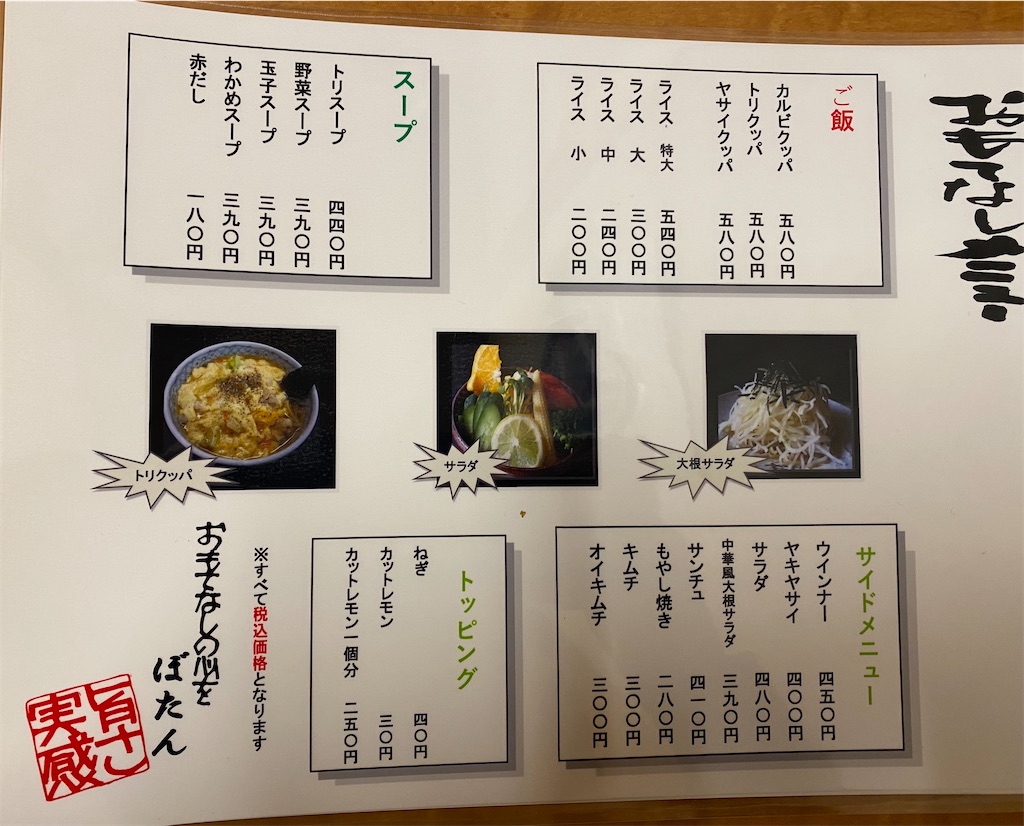 ご飯
カルビクッパ 五八〇円
トリクッパ 五八〇円
ヤサイクッパ 五八〇円
ライス 特大 五四〇円
ライス 大 三〇〇円
ライス 中 二四〇円
ライス 小 二〇〇円
スープ
トリスープ 四四〇円
野菜スープ 三九〇円
玉子スープ 三九〇円
わかめスープ 三九〇円
赤だし 一八〇円
大根サラダ
サラダ
トリクッパ
サイドメニュー
ウインナー 四五〇円
ヤキヤサイ 四〇〇円
サラダ 四八〇円
中華風大根サラダ 三九〇円
サンチュ 四一〇円
もやし焼き 二八〇円
キムチ 三〇〇円
オイキムチ 三〇〇円
トッピング
ねぎ 四〇円
カットレモン 三〇円
カットレモン一個分 二五〇円
※すべて税込価格となります
おもてなしの心を
ぼたん
旨さ
実感